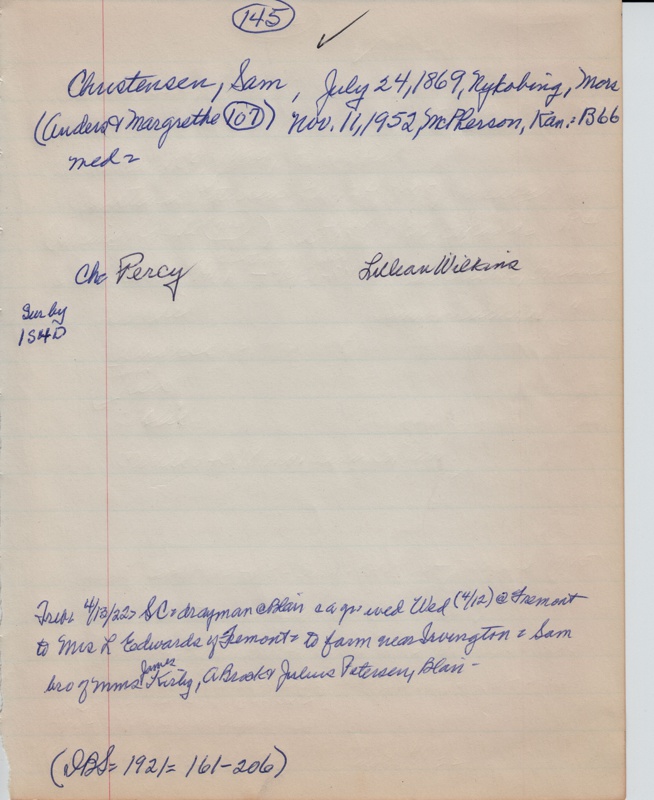 145
Christensen, Sam, July 24, 1869, Nykobing, Mors
(Anders & Margrethe 107) Nov. 11, 1952, McPherson, Kan. = B66
med =
Ch = Percy Lillian Wilkins
Sur by
1S4D
Trib = 4/13/22 = SC = drayman @ Blair wed Wed (4/12) @ Fremont
to Mrs L Edwards of Fremont = to farm near Irvington = Sam
bro of mms James Kirby, A Brook & Julius Petersen, Blair -
(DBS = 1921 = 161-206)